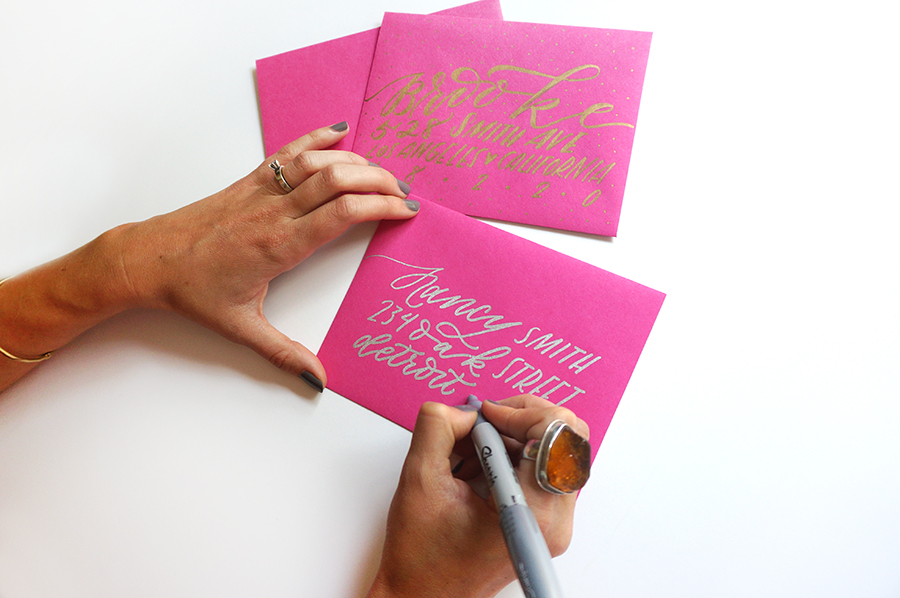 Brooke
8·28 SMITH AVE
LOS ANGELES ♥ CALIFORNIA
8 · 2 · 2 · 0
Nancy SMITH
234 oak STREET
detroit
Sharpie